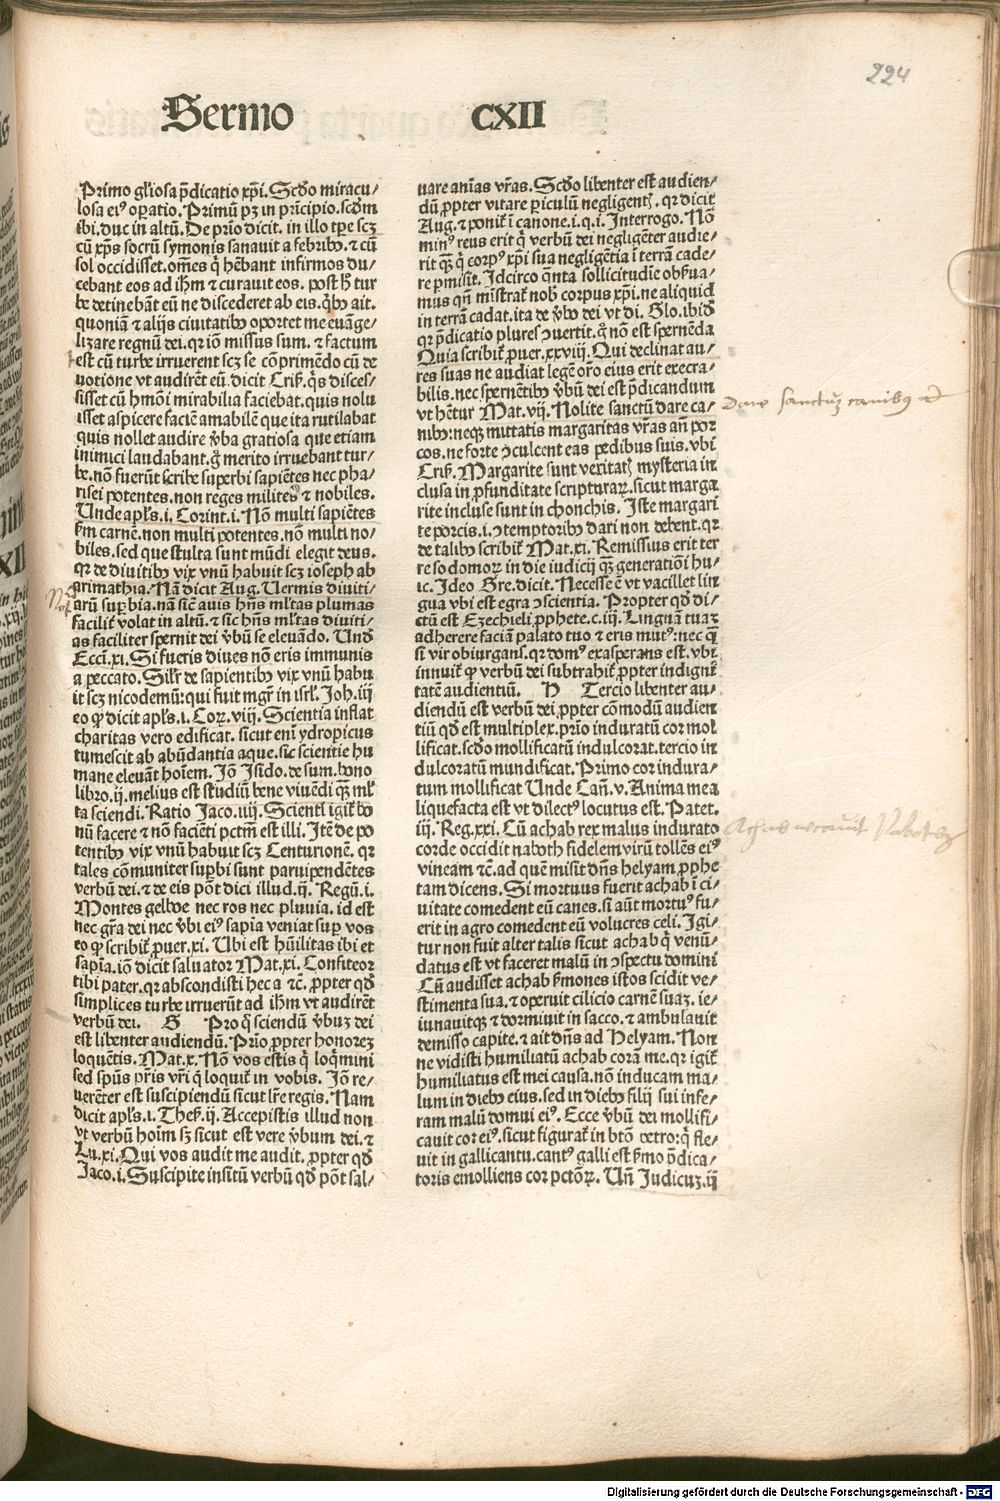 224
Sermo CXII
Primo gl'iosa p̄dicatio xp̄i. Scďo miracu/
losa ei⁹ oꝑatio. Primū pꝫ in prīcipio. scďm
ibi. duc in altū. De prīo dicit. in illo tꝑe scꝫ
cū xp̄s socrū symonis sanauit a febribꝰ. ⁊ cū
sol occidisset. om̄es q̇ hēbant infirmos du/
cebant eos ad ihm̄ ⁊ curauit eos. post h̄ tur
be detinebāt eū ne discederet ab eis. q̇bꝰ ait.
quoniā ⁊ alijs ciuitatibꝰ oportet me euāge/
lizare regnū dei. qꝛ iō missus sum. ⁊ factum
est cū turbe irruerent scꝫ se cōprimēdo cū de
uotione vt audirēt eū. dicit Crisͨ. q̇s disces/
sisset cū hmōi mirabilia faciebat. quis nolu
isset aspicere faciē amabilē que ita rutilabat
quis nollet audire v̄ba gratiosa que etiam
inimici laudabant. g̊ merito irruebant tur/
be. nō fuerūt scribe superbi sapiētes nec pha/
risei potentes. non reges milites ⁊ nobiles.
Unde apl's. i. Corint. i. Nō multi sapiētes
ẜm carnē. non multi potentes. nō multi no/
biles. sed que stulta sunt mūdi elegit deus.
qꝛ de diuitibꝰ vix vnū habuit scꝫ ioseph ab
arimathia. Nā dicit Aug. Uermis diuiti/
arū suꝑbia. nā sic̄ auis hn̄s ml'tas plumas
facilit̄ volat in altū. ⁊ sic hn̄s ml'tas diuiti/
as faciliter spernit dei v̄bū se eleuādo. Und̄
Ecci. xi. Si fueris diues nō eris immunis
a peccato. Sil'r de sapientibꝰ vix vnū habu
it scꝫ nicodemū: qui fuit mgr̄ in isrl'. Joh. iij
eo ꝙ dicit apl's. i. Coꝝ. viij. Scientia inflat
charitas vero edificat. sicut eni ydropicus
tumescit ab abūdantia aque. sic scientie hu
mane eleuāt hoīem. Jō Isido. de sum. bono
libro. ij. melius est studiū bene viuēdi qꝫ ml'
ta sciendi. Ratio Jaco. iiij. Scienti igit̄ bo
nū facere ⁊ nō faciēti pctm̄ est illi. Itē de po
tentibꝰ vix vnū habuit scꝫ Centurionē. qꝛ
tales cōmuniter suꝑbi sunt paruipendētes
verbū dei. ⁊ de eis pōt dici illud. ij. Regū. i.
Montes gelboe nec ros nec pluuia. id est
nec gr̄a dei nec v̄bi ei⁹ sapīa veniat suꝑ vos
eo ꝙ scribit̄ ꝓuer. xi. Ubi est hūilitas ibi et
sapīa. iō dicit saluator Mat. xi. Confiteor
tibi pater. qꝛ abscondisti hec a ⁊c̄. ꝓpter qḋ
simplices turbe irruerūt ad ihm̄ vt audirēt
verbū dei. G Pro q̊ sciendū v̄buꝫ dei
est libenter audiendū. Prīo ꝓpter honoreꝫ
loquētis. Mat. x. Nō vos estis q̇ loq̇mini
sed spūs pr̄is vr̄i q̇ loquit̄ in vobis. Jō re/
uerēter est suscipiendū sicut lr̄e regis. Nam
dicit apl's. i. Thesͨ. ij. Accepistis illud non
vt verbū hoīm sꝫ sicut est vere v̄bum dei. ⁊
Lu. xi. Qui vos audit me audit. ꝓpter qḋ
Jaco. i. Suscipite insitū verbū qḋ pōt sal/
uare aīas vr̄as. Scďo libenter est audien/
dū ꝓpter vitare ꝑiculū negligentꝭ. qꝛ dicit
Aug. ⁊ ponit̄ ī canone. i. q. i. Interrogo. Nō
min⁹ reus erit q̇ verbū dei negligēter audie/
rit qꝫ q̇ corp⁹ xp̄i sua negligētia ī terrā cade/
re ꝑmisit̄. Jdcirco q̄nta sollicitudīe obẜua/
mus qn̄ mīstrat̄ nob̄ corpus xp̄i. ne aliquid
in terrā cadat. ita de v̄bo dei vt di. Glo. ibid̄
qꝛ p̄dicatio plures ꝯuertit. q̄ nō est spernēda
Quia scribit̄ ꝓuer. xxviij. Qui declinat au/
res suas ne audiat legē oro eius erit execra/
bilis. nec spernētibꝰ v̄bū dei est p̄dicandum
vt hētur Mat. vij. Nolite sanctū dare ca/
nibꝰ: neqꝫ mittatis margaritas vr̄as añ por
cos. ne forte ꝯculcent eas pedibus suis. vbi
Crisͨ. Margarite sunt veritatꝭ mysteria in
clusa in ꝓfunditate scripturaꝝ. sicut marga
rite incluse sunt in chonchis. Iste margari
te porcis. i. ꝯtemptoribꝰ dari non debent. qꝛ
de talibꝰ scribit̄ Mat. xi. Remissius erit ter
re sodomoꝝ in die iudicij qꝫ generatiōi hu/
ic. Ideo Gre. dicit. Necesse ē vt vacillet lin
gua vbi est egra ꝯscientia. Propter qḋ di/
ctū est Ezechieli ꝓphete. c. iij. Linguā tuaꝫ
adherere faciā palato tuo ⁊ eris mut⁹: nec q̄
si vir obiurgans. qꝛ dom⁹ exasperans est. vbi
innuit̄ ꝙ verbū dei subtrahit̄ ꝓpter indigni
tatē audientiū. H Tercio libenter au/
diendū est verbū dei ꝓpter cōmodū audien
tiū qḋ est multiplex. prīo induratū cor mol
lificat. scďo mollificatū indulcorat. tercio in
dulcoratū mundificat. Primo cor indura/
tum mollificat Unde Cañ. v. Anima mea
liquefacta est vt dilect⁹ locutus est. Patet.
iij. Reg. xxi. Cū achab rex malus indurato
corde occidit naboth fidelem virū tollēs ei⁹
vineam ⁊c̄. ad quē misit dn̄s helyam ꝓphe
tam dicens. Si mortuus fuerit achab ī ci/
uitate comedent eū canes. si aūt mortu⁹ fu/
erit in agro comedent eū volucres celi. Igi/
tur non fuit alter talis sicut achab q̇ venū/
datus est vt faceret malū in ꝯspectu domini
Cū audisset achab ẜmones istos scidit ve/
stimenta sua. ⁊ operuit cilicio carnē suaꝫ. ie/
iunauitqꝫ ⁊ dormiuit in sacco. ⁊ ambulauit
demisso capite. ⁊ ait dn̄s ad Helyam. Non
ne vidisti humiliatū achab corā me. qꝛ igit̄
humiliatus est mei causa. nō inducam ma/
lum in diebꝰ eius. sed in diebꝰ filij sui infe/
ram malū domui ei⁹. Ecce v̄bū dei mollifi/
cauit cor ei⁹. sicut figurat̄ in btō petro: q̇ fle/
uit in gallicantu. cant⁹ galli est ẜmo p̄dica/
toris emolliens cor pctōꝝ. Uñ Judicuꝫ. ij
Dare sanctuꝫ canibꝰ
Digitalisierung gefördert durch die Deutsche Forschungsgemeinschaft - DFG